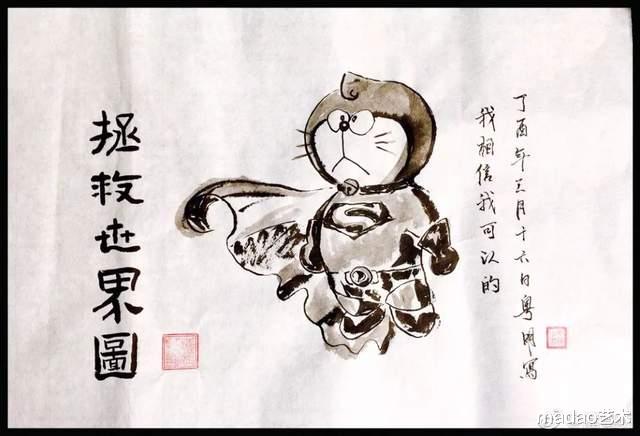 拯救世界圖
丁酉年三月十六日粤明寫
我相信我可以的
madao艺术